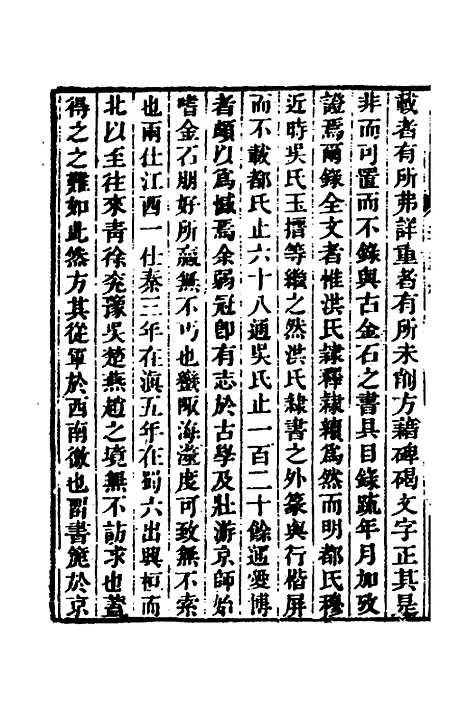 載者有所弗詳重者有所未削方藉碑碣文字正其是
非而可置而不錄與古金石之書具目錄疏年月加攷
證焉爾錄全文者惟洪氏隸釋隸續爲然而明都氏穆
近時吳氏玉搢等繼之然洪氏隸書之外篆與行楷屏
而不載都氏止六十八通吳氏止一百二十餘通愛博
者頗以爲憾焉余弱冠卽有志於古學及壯游京師始
嗜金石朋好所贏無不丐也蠻陬海澨度可致無不索
也兩仕江西一仕秦三年在滇五年在蜀六出興桓而
北以至往來青徐兗豫吳楚燕趙之境無不訪求也蓋
得之之難如此然方其從軍於西南徼也留書簏於京